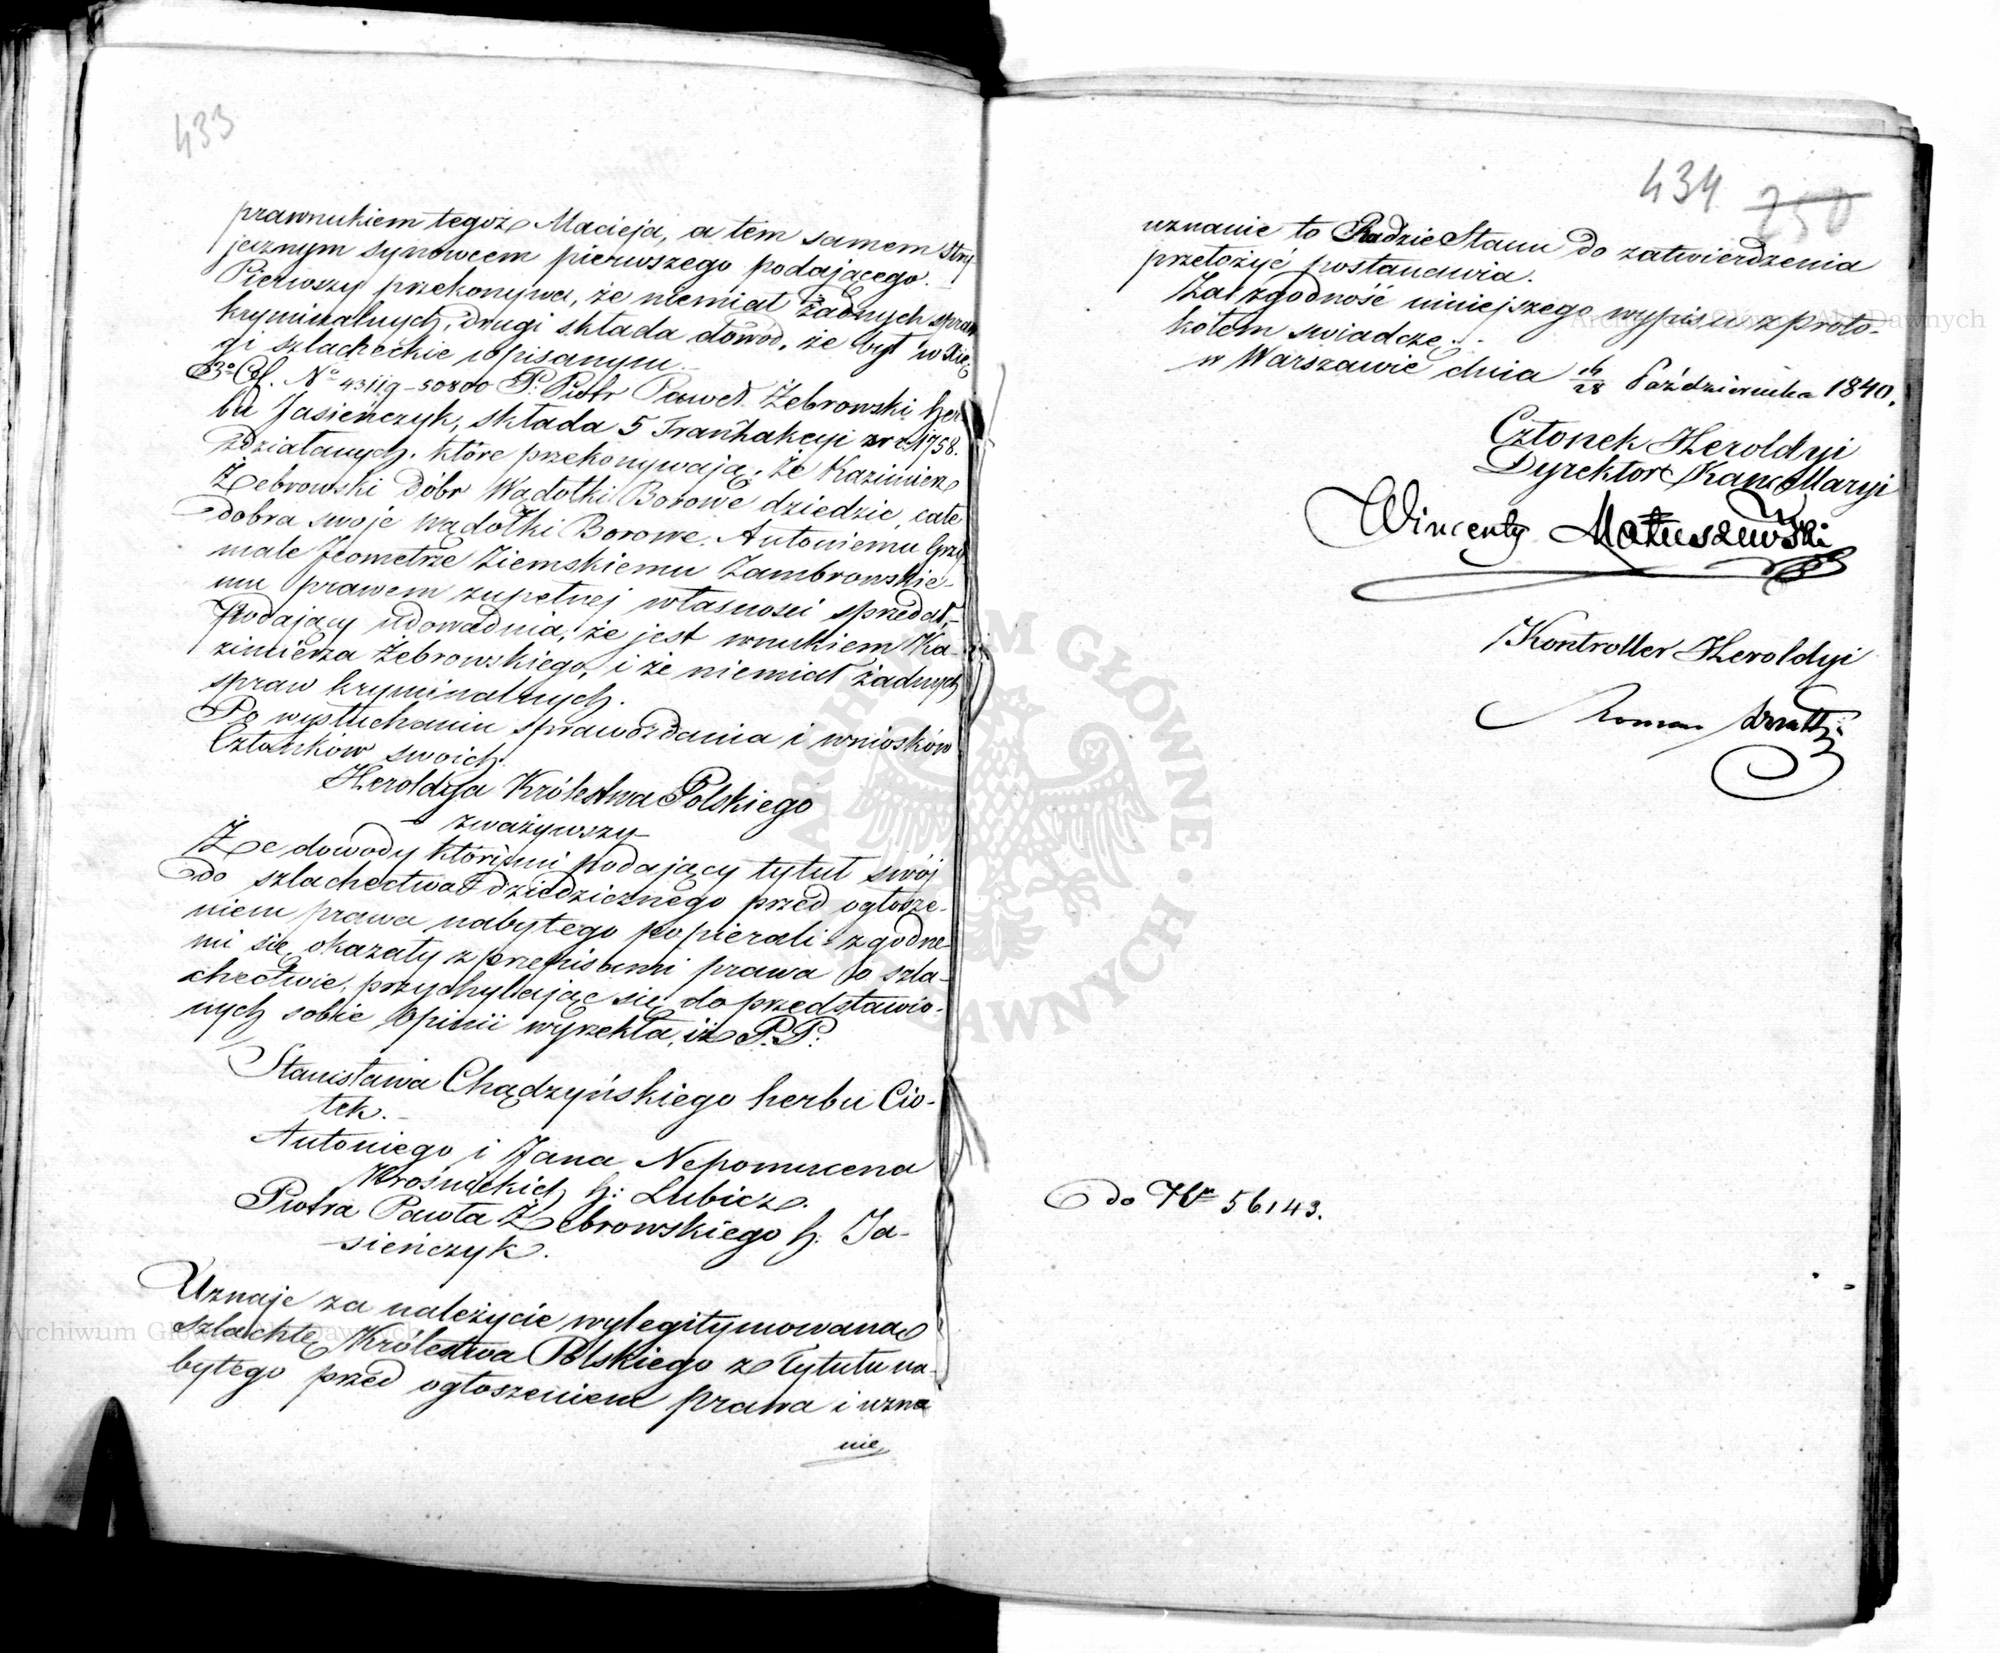 433
prawnukiem tegoż Macieja, a tem samem stry
jecznym synowcem pierwszego podającego.
Pierwszy przekonywa, że niemiał żadnych spraw
kryminalnych, drugi składa dowód, że był w Xię
gi szlacheckie wpisanym.
3o Col. No 43119-50800 P. Piotr Paweł Żebrowski her
bu Jasieńczyk, składa 5 Tranzakcyi z r. 1758.
zdziałanych, które przekonywają, że Kazimierz
Żebrowski dóbr Wądołki Borowe dziedzic, całe
dobra swoje Wądołki Borowe, Antoniemu Grzy
male Jeometrze Ziemskiemu Zambrowskie-
mu prawem zupełnej własności sprzedał,-
Podający udowadnia, że jest wnukiem Ka-
zimierza Żebrowskiego, i że niemiał żadnych
spraw kryminalnych.
Po wysłuchaniu sprawozdania i wniosków
Członków swoich
Heroldyja Królestwa Polskiego
zważywszy
Że dowody któremi podający tytuł swój
do szlachectwa dziedzicznego przed ogłosze-
niem prawa nabytego popierali zgodne-
mi się okazały z przepisami prawa o szla-
chectwie, przychylając się do przedstawio-
nych sobie opinii wyrzekła, iż P.P.
Stanisława Chądzyńskiego herbu Cio-
łek.-
Antoniego i Jana Nepomucena
Krośnickich h: Lubicz.
Piotra Pawła Żebrowskiego h. Ja-
sieńczyk.
Uznaje za należycie wylegitymowaną
szlachtę Królestwa Polskiego z Tytułu na-
bytego przed ogłoszeniem prawa i uzna
nie
434 250
uznanie to Radzie Stanu do zatwierdzenia
przełożyć postanawia.
Za zgodność niniejszego wypisu z proto-
kołem swiadczę.
w Warszawie dnia 16/28 Października 1840.
Członek Heroldyi
Dyrektor Kancellaryi
Wincenty Matuszewski
Kontroller Heroldyi
Roman
do Nr 56143.
ARCHIWUM GŁÓWNE AKT DAWNYCH
Archiwum Główne Akt Dawnych
Archiwum Główne Akt Dawnych